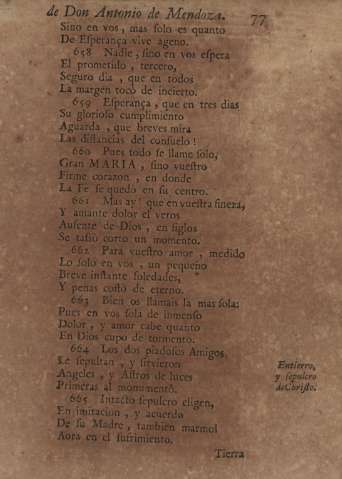 de Don Antonio de Mendoza. 77
Sino en vos, mas solo es quanto
De Esperança vive ageno.
658 Nadie, sino en vos espera
El prometido, tercero,
Seguro dia, que en todos
La margen tocò de incierto.
659 Esperança, que en tres dias
Su glorioso cumplimiento
Aguarda, que breves mira
Las distancias del consuelo!
660 Pues todo se llame solo,
Gran MARIA, sino vuestro
Firme corazon, en donde
La Fe se quedò en su centro.
661 Mas ay! que en vuestra fineza,
Y amante dolor el veros
Ausente de Dios, en siglos
Se tassò corto un momento.
662 Para vuestro amor, medido
Lo solo en vos, un pequeño
Breve instante soledades,
Y penas costò de eterno.
663 Bien os llamais la mas sola:
Pues en vos sola de inmenso
Dolor, y amor cabe quanto
En Dios cupo de tormento.
664 Los dos piadosos Amigos,
Le sepultan, y sirvieron
Angeles, y Astros de luces
Primeras al monumento.
Entierro,
y sepulcro
de Christo.
665 Intacto sepulcro eligen,
En imitacion, y acuerdo
De su Madre, tambien marmol
Aora en el sufrimiento.
Tierra